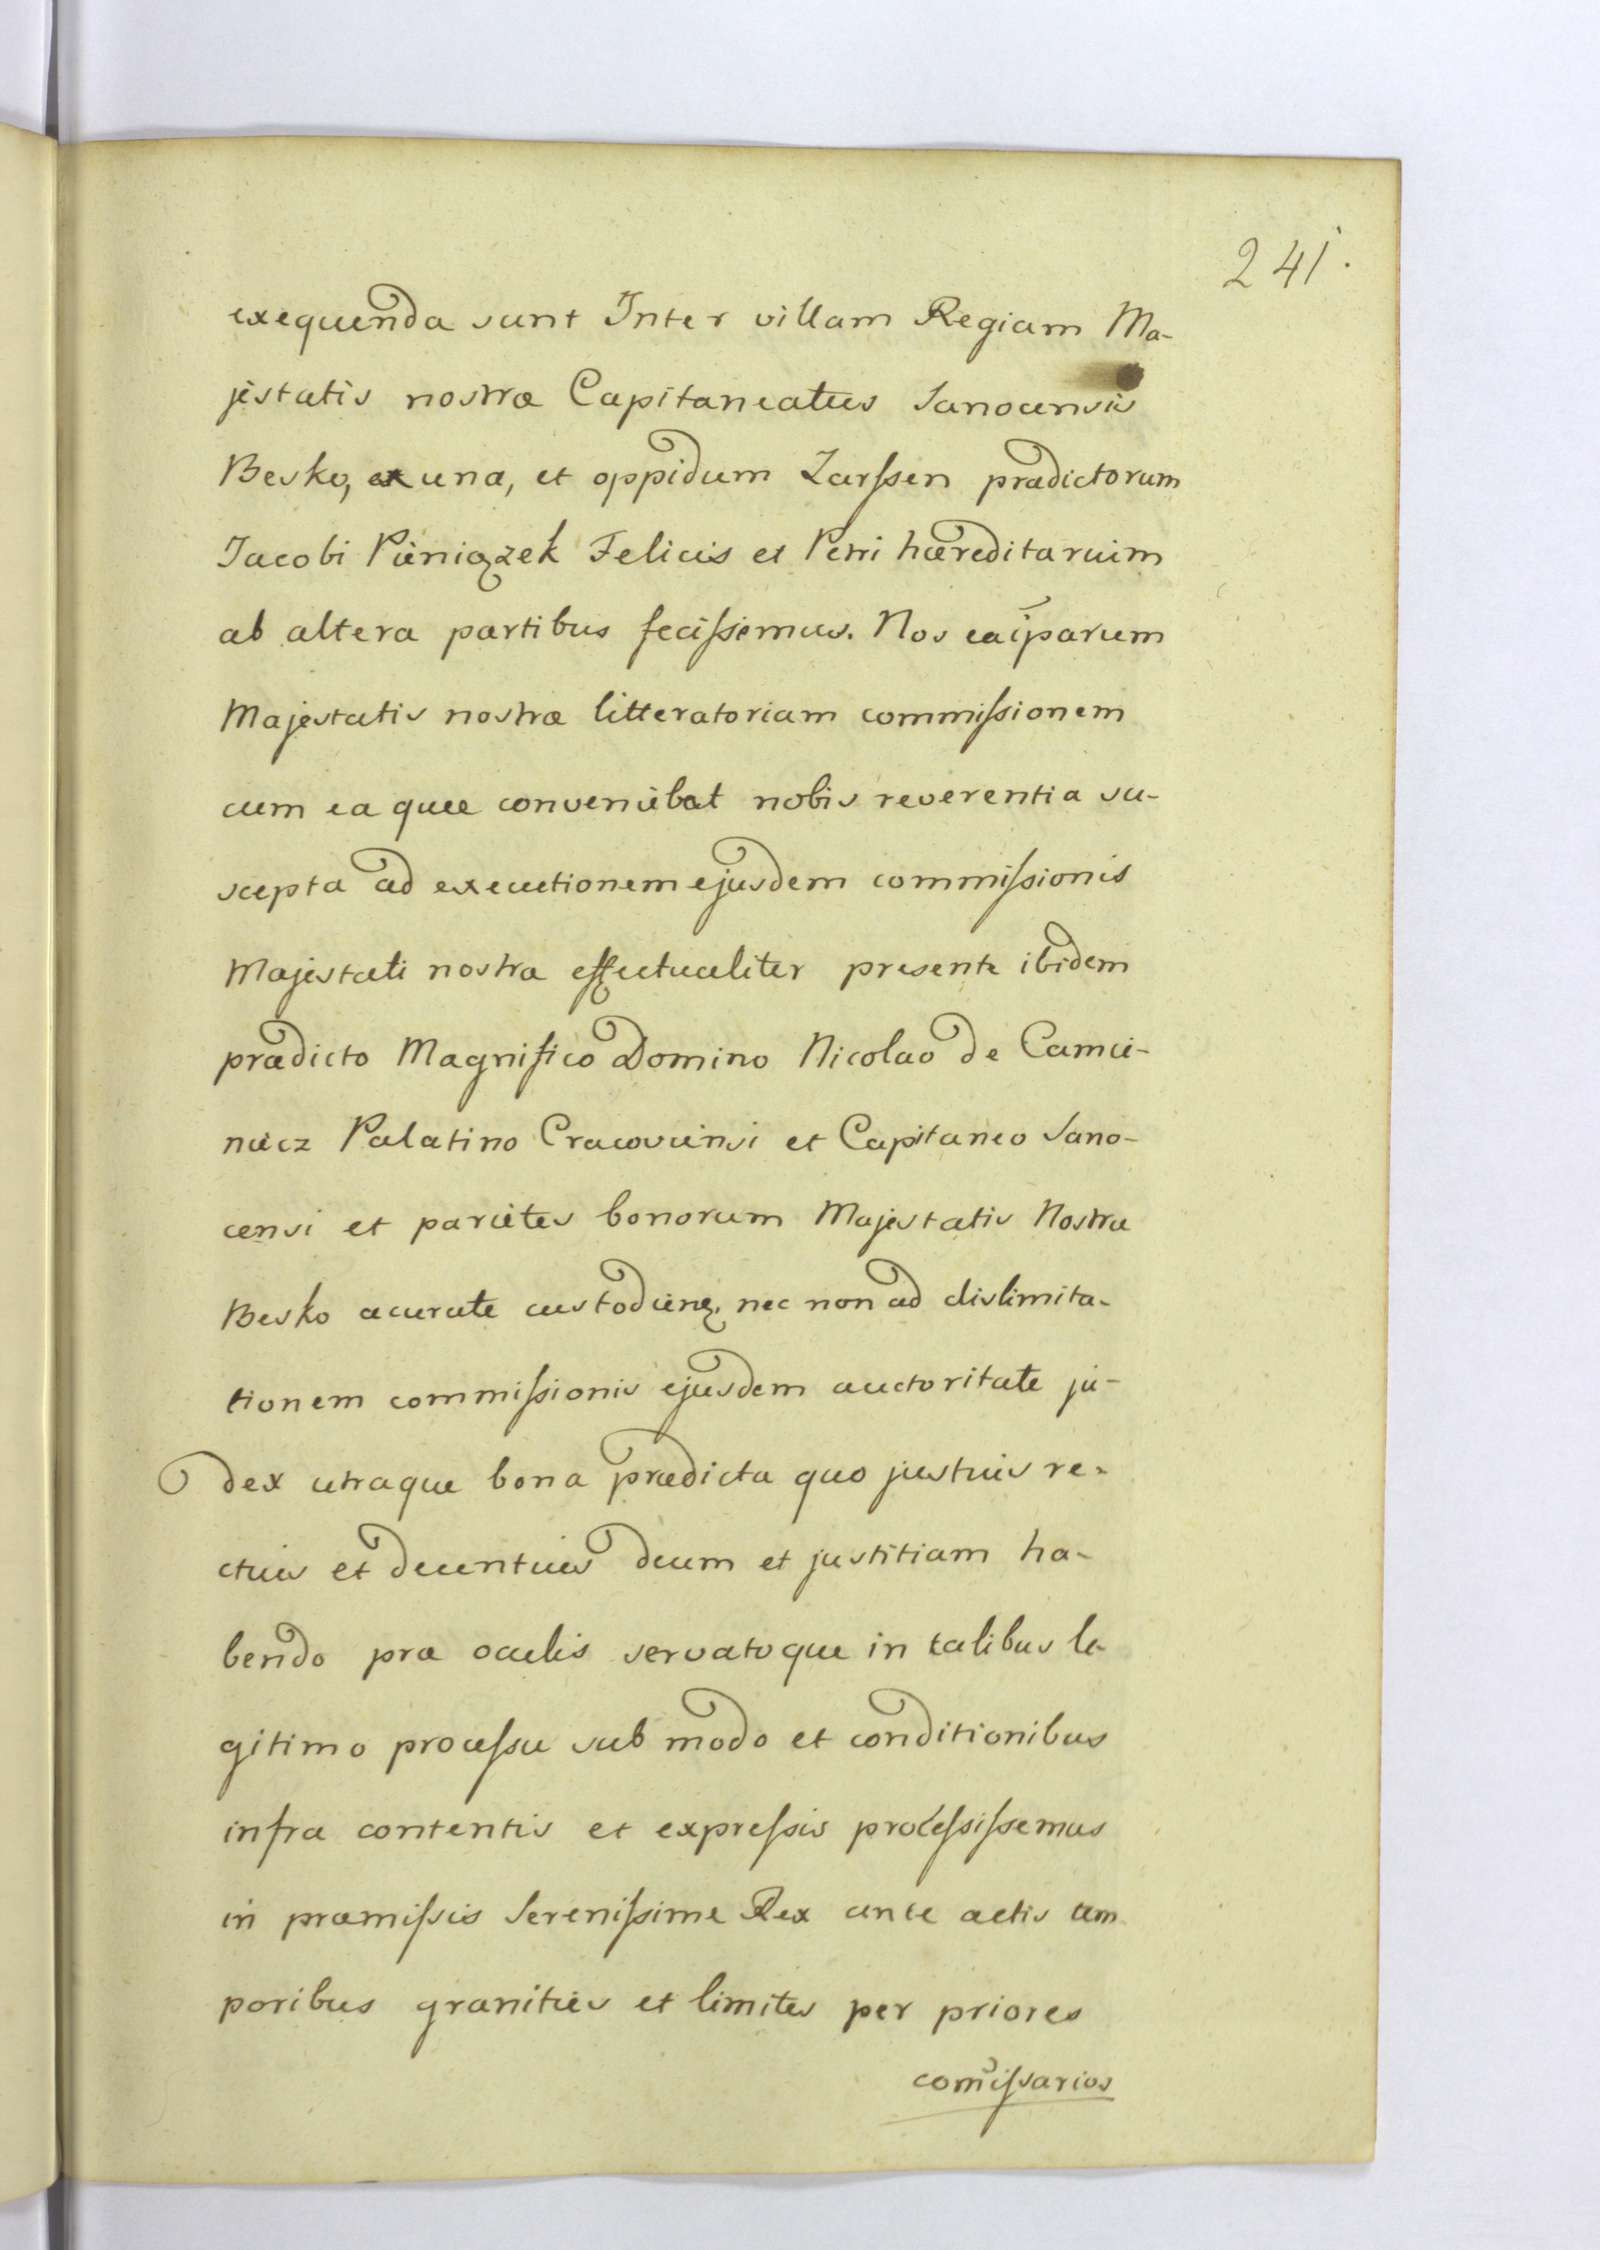 241.
exequenda sunt Inter villam Regiam Ma-
jestatis nostræ Capitaneatus Sanocensis
Besko, ex una, et oppidum Zarssen prædictorum
Jacobi Pieniązek Felicis et Petri hæreditarium
ab altera partibus fecissemus. Nos
Majestatis nostræ litteratoriam commissionem
cum ea quæ conveniebat nobis reverentia su-
scepta ad executionem ejusdem commissionis
Majestati nostra effectualiter presente ibidem
prædicto Magnifico Domino Nicolao de Camie-
niecz Palatino Cracoviensi et Capitaneo Sano-
censi et parietes bonorum Majestatis Nostra
Besko acurate custodien. nec non ad dislimita-
tionem commissionis ejusdem auctoritate ju-
dex utraque bona prædicta quo justius re-
ctius et decentius deum et justitiam ha-
bendo præ oculis servatoque in talibus le-
gitimo processu sub modo et conditionibus
infra contentis et expressis processissemus
in præmissis Serenissime Rex ante actis tem
poribus granities et limites per priores
com̄issarios